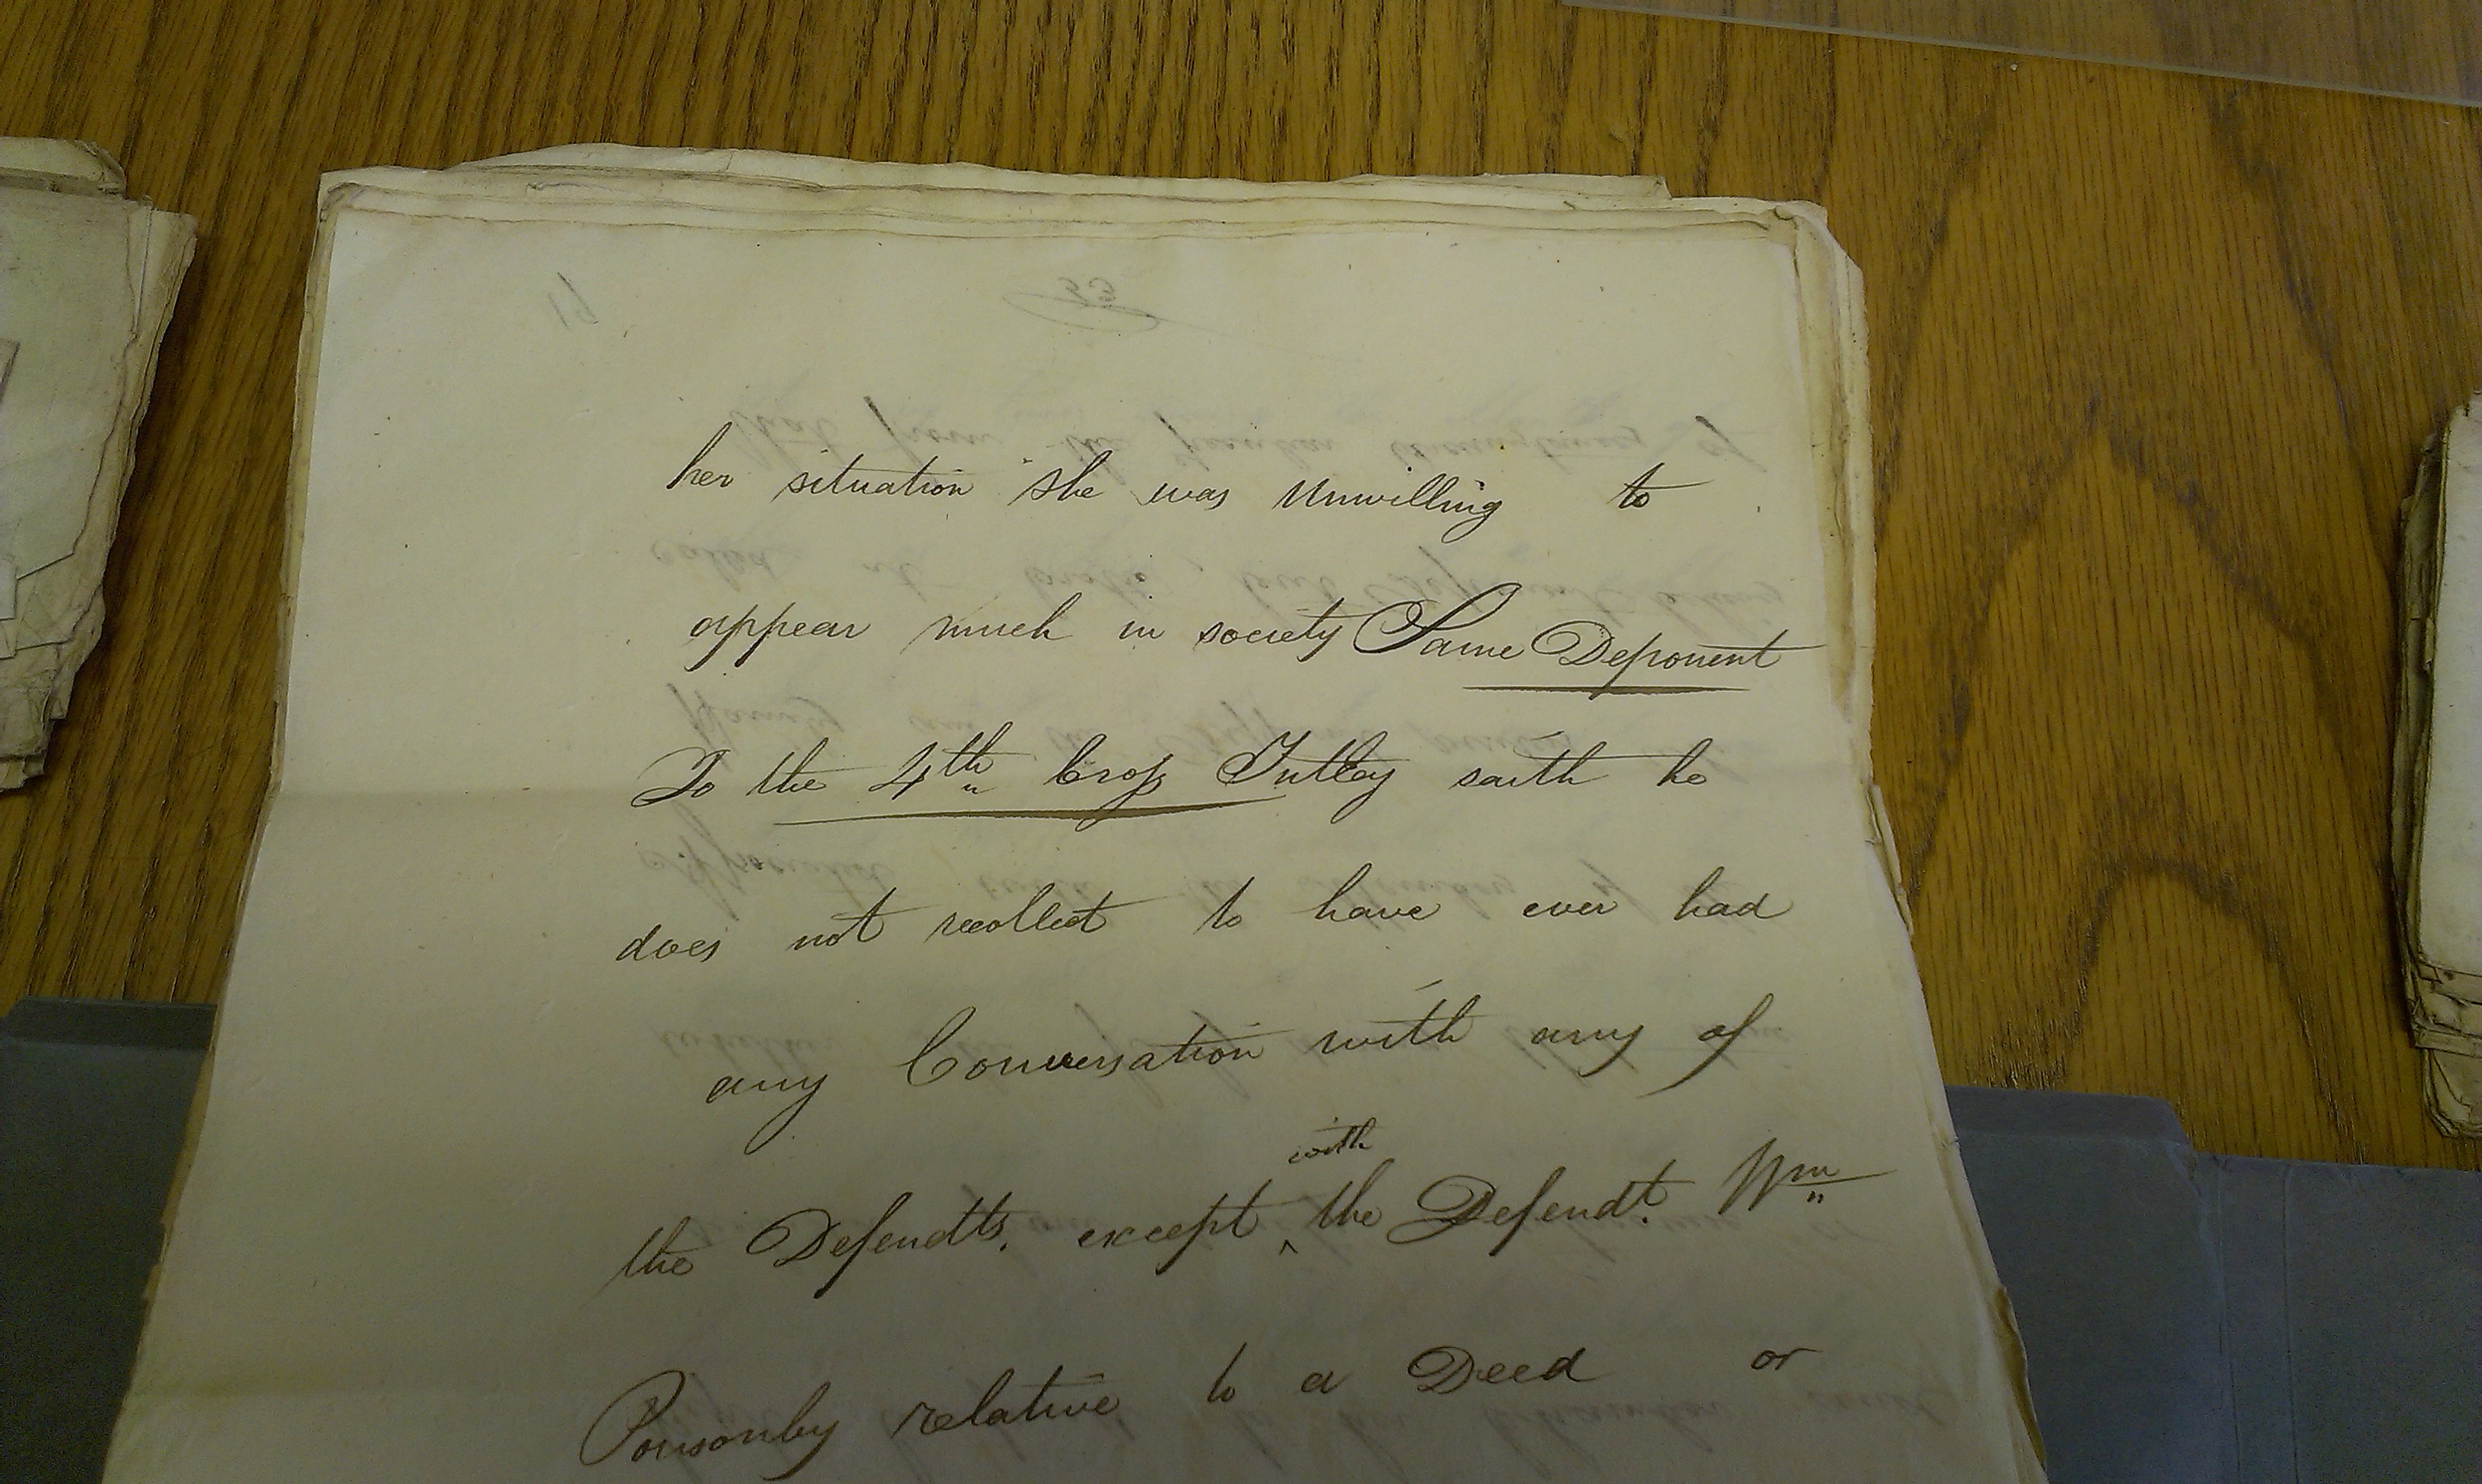 her situation she was unwilling to
appear much in society Same Deponent
To the 4th Cross Intley saith he
does not recollect to have ever had
any Conversation with any of
with
the Defendts. except ^ the Defendt. Wm
Ponsonby relative to a Deed or